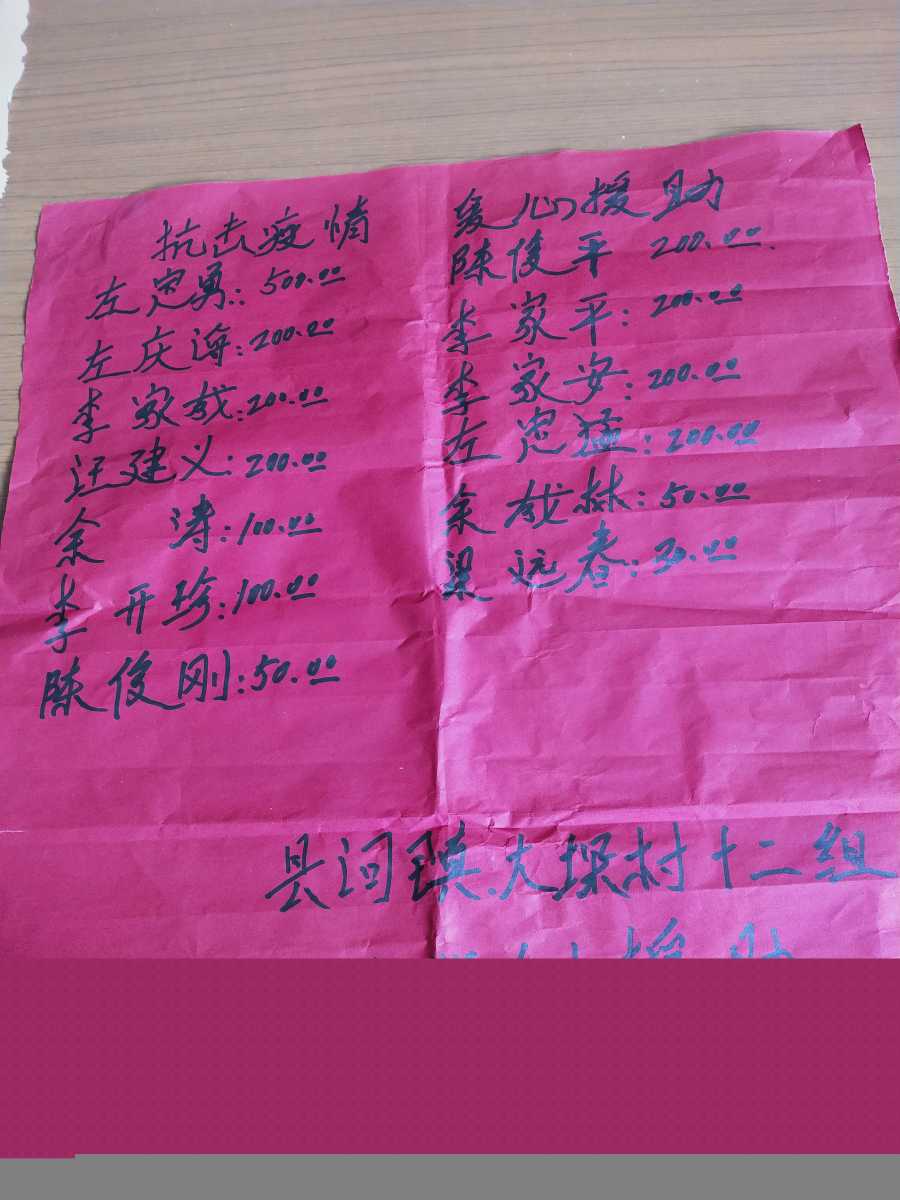 抗击疫情
左忠勇:500.00
左庆海:200.00
李家成:200.00
汪建义:200.00
余涛:100.00
李开珍:100.00
陈俊刚:50.00
爱心援助
陈俊平 200.00
李家平:200.00
李家安:200.00
左忠猛:200.00
余成林:50.00
梁远春:30.00
县河镇大垛村十二组
援助